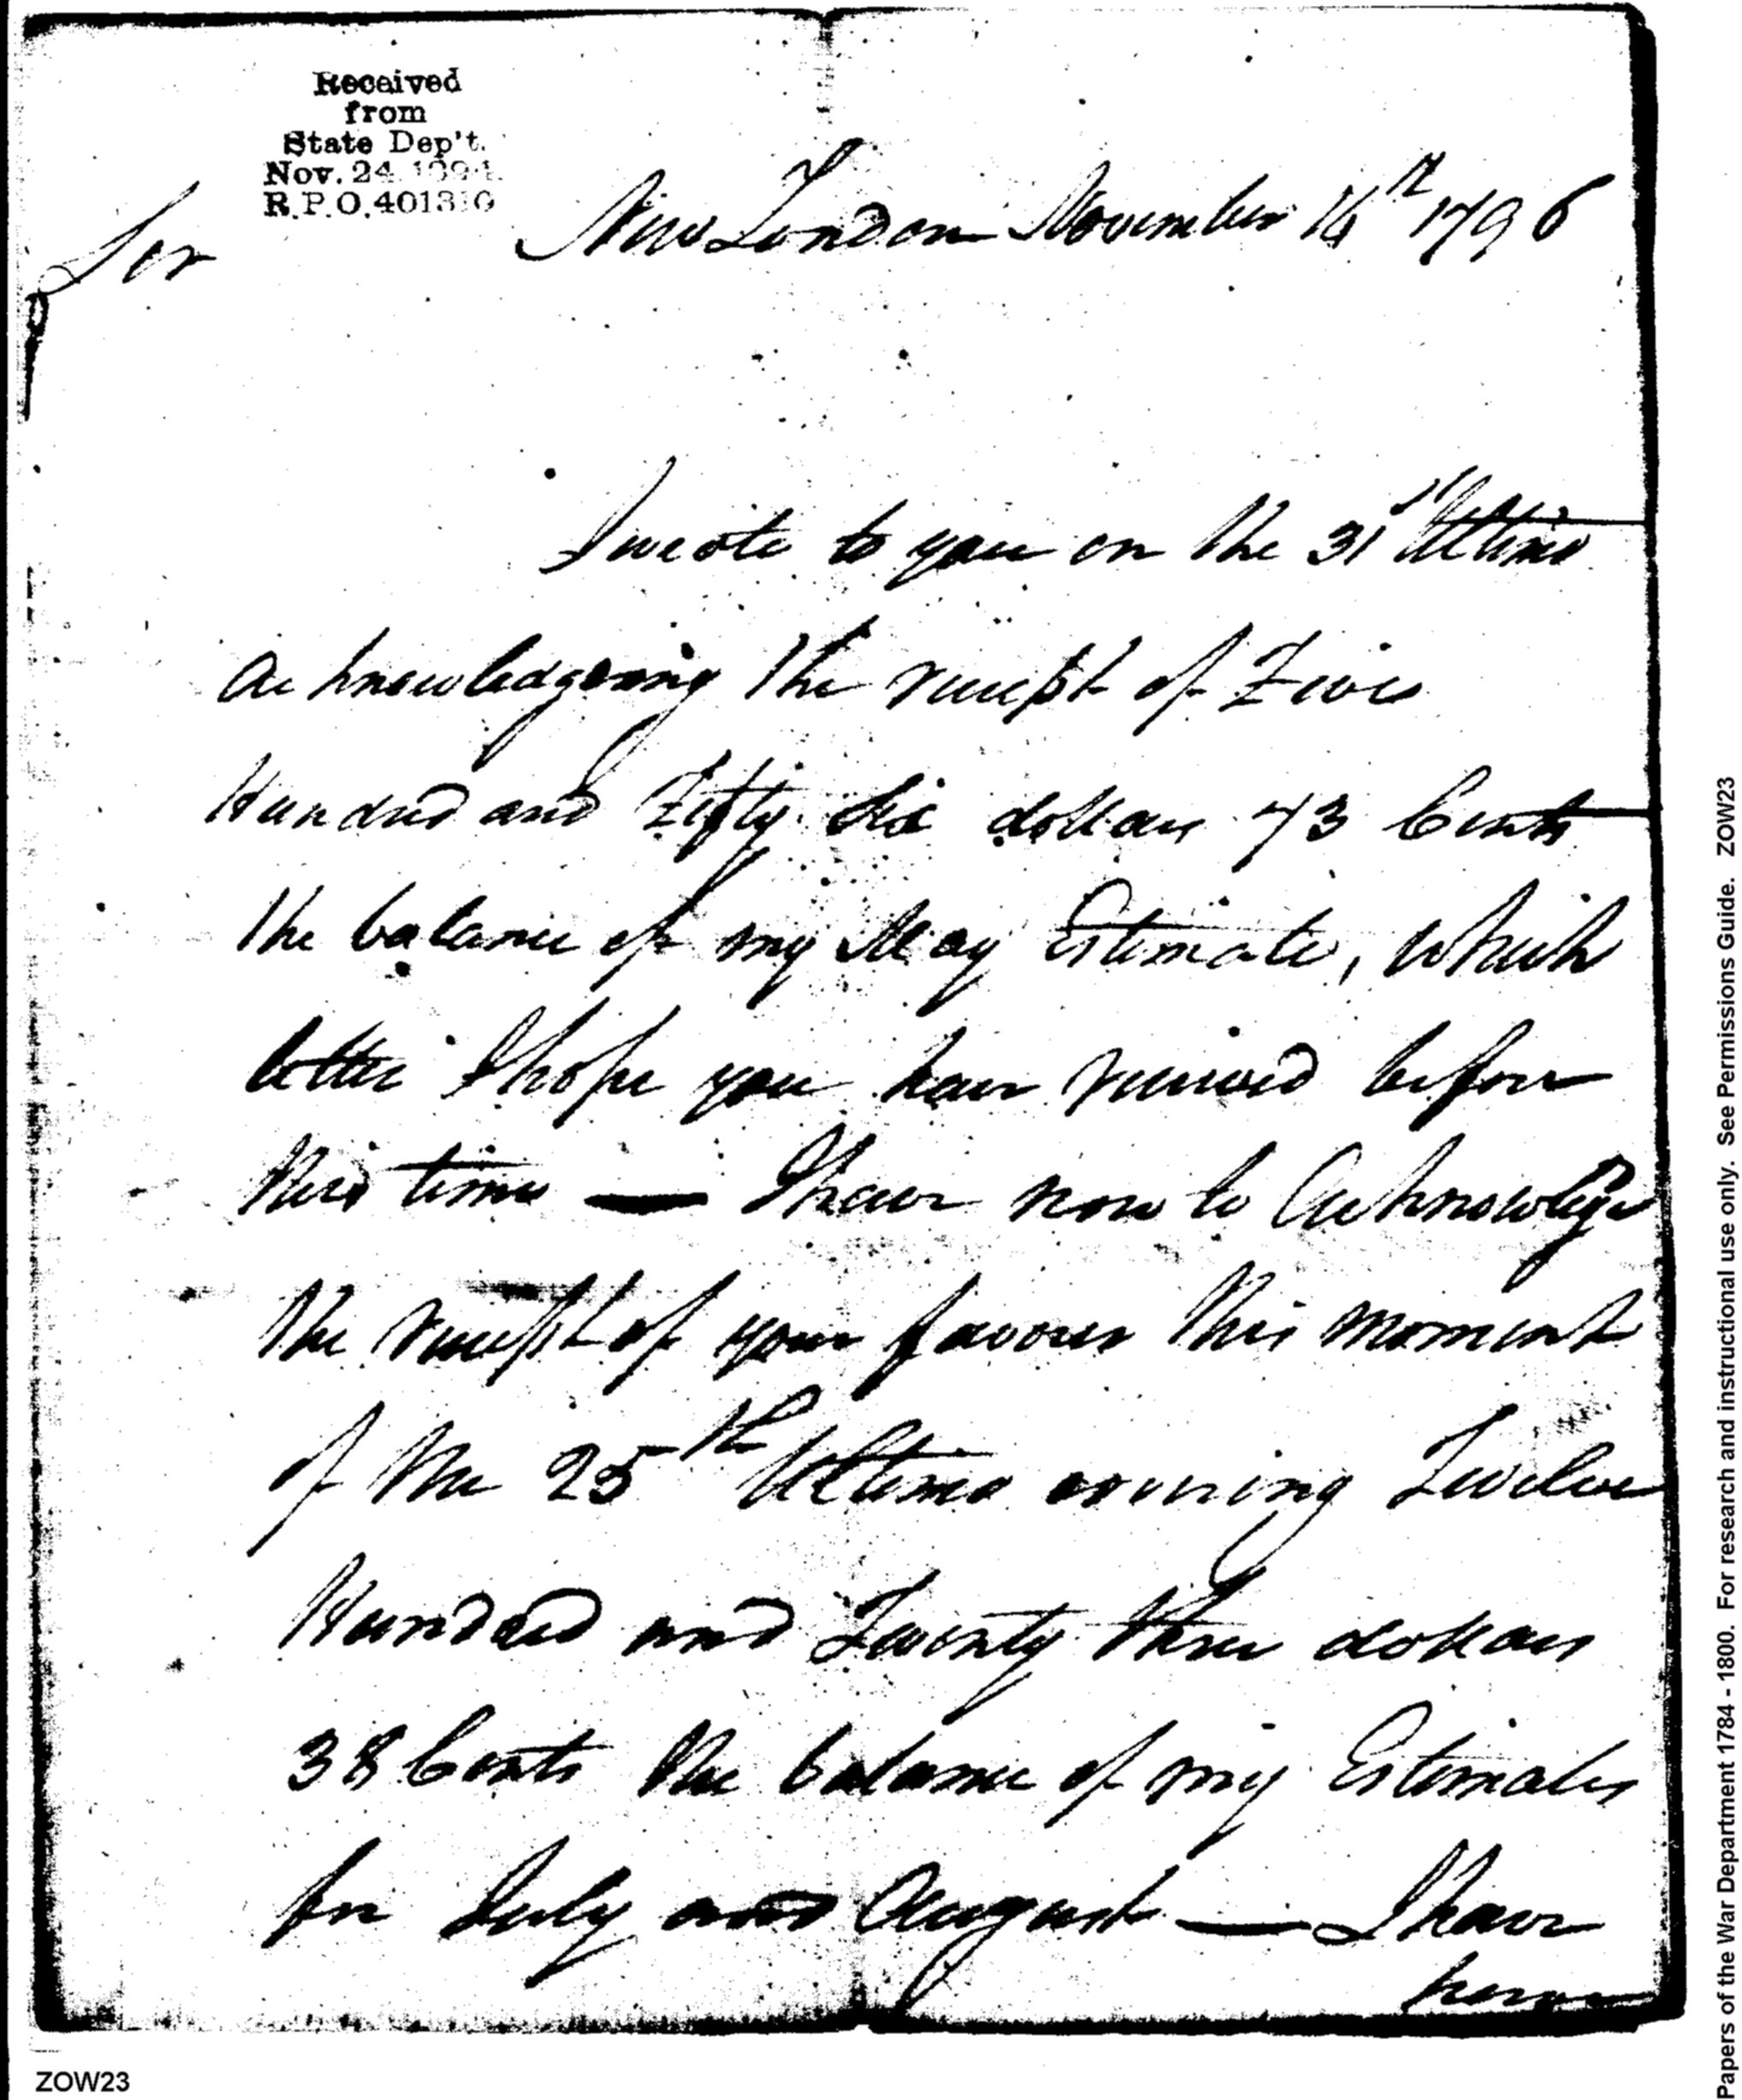 Received
from
State Dep't.
Nov. 24 1894
R.P.O. 401310
Sir
New London November 14th 1796
I wrote to you on the 31st Ultimo
Acknowledgeing the receipt of Five
Hundred and Fifty Six dollars 73 Cents
the balance of my May Estimate, which
letter I hope you have received before
this time — I have now to Acknowledge
the receipt of your favour this moment
of the 25th Ultimo covering Twelve
Hundred and Twenty three dollars
38 Cents the balance of my Estimates
for July and August — I have
ZOW23
Papers of the War Department 1784 - 1800. For research and instructional use only. See Permissions Guide. ZOW23